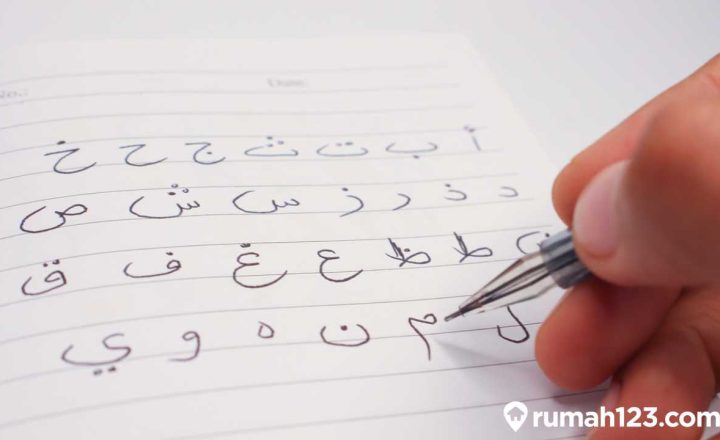 Date
أ ب ت ث ج ح خ
د ذ ر ز س ش ص
ط ظ ع غ ف ق
ل م ن ه و ي
rumah123.com